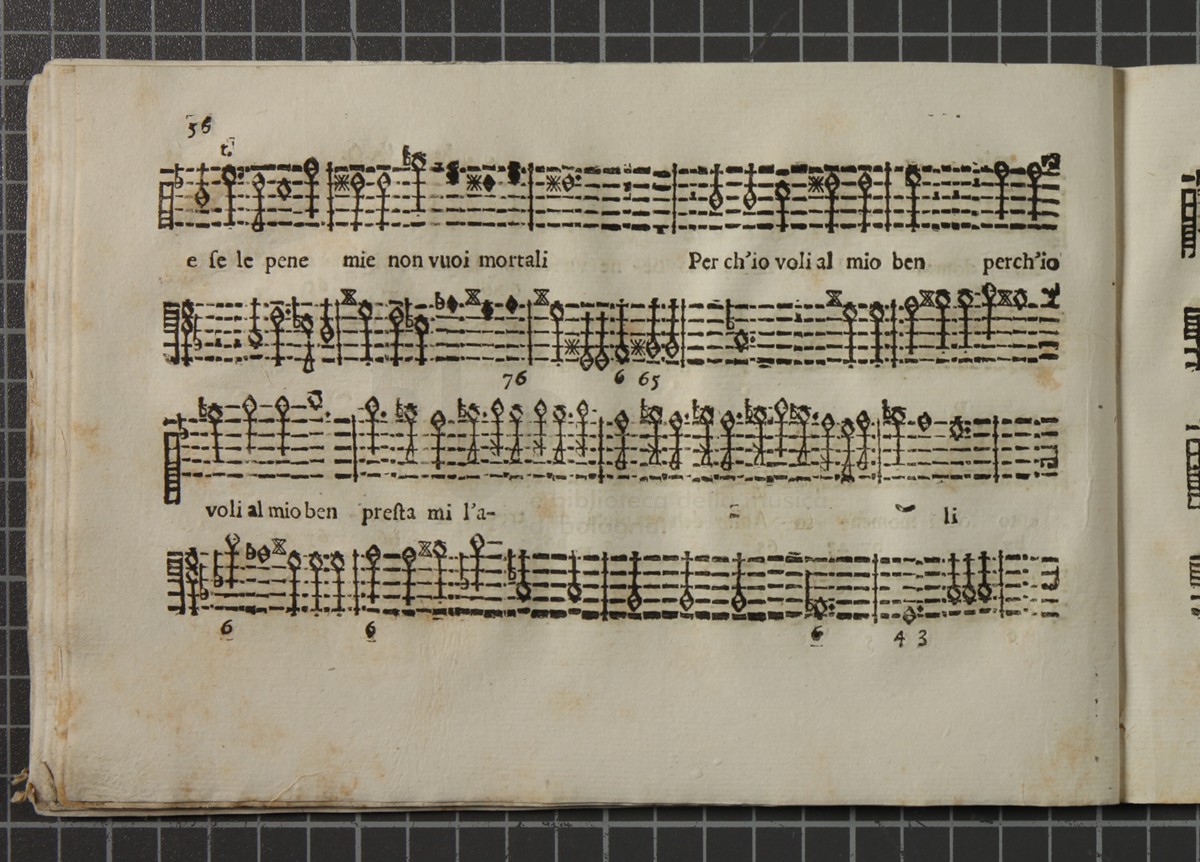 56
t.
e ſe le pene mie non vuoi mortali Per ch'io voli al mio ben perch'io
76 6 65
voli al mio ben preſta mi l'a- - li
6 6 6 4 3